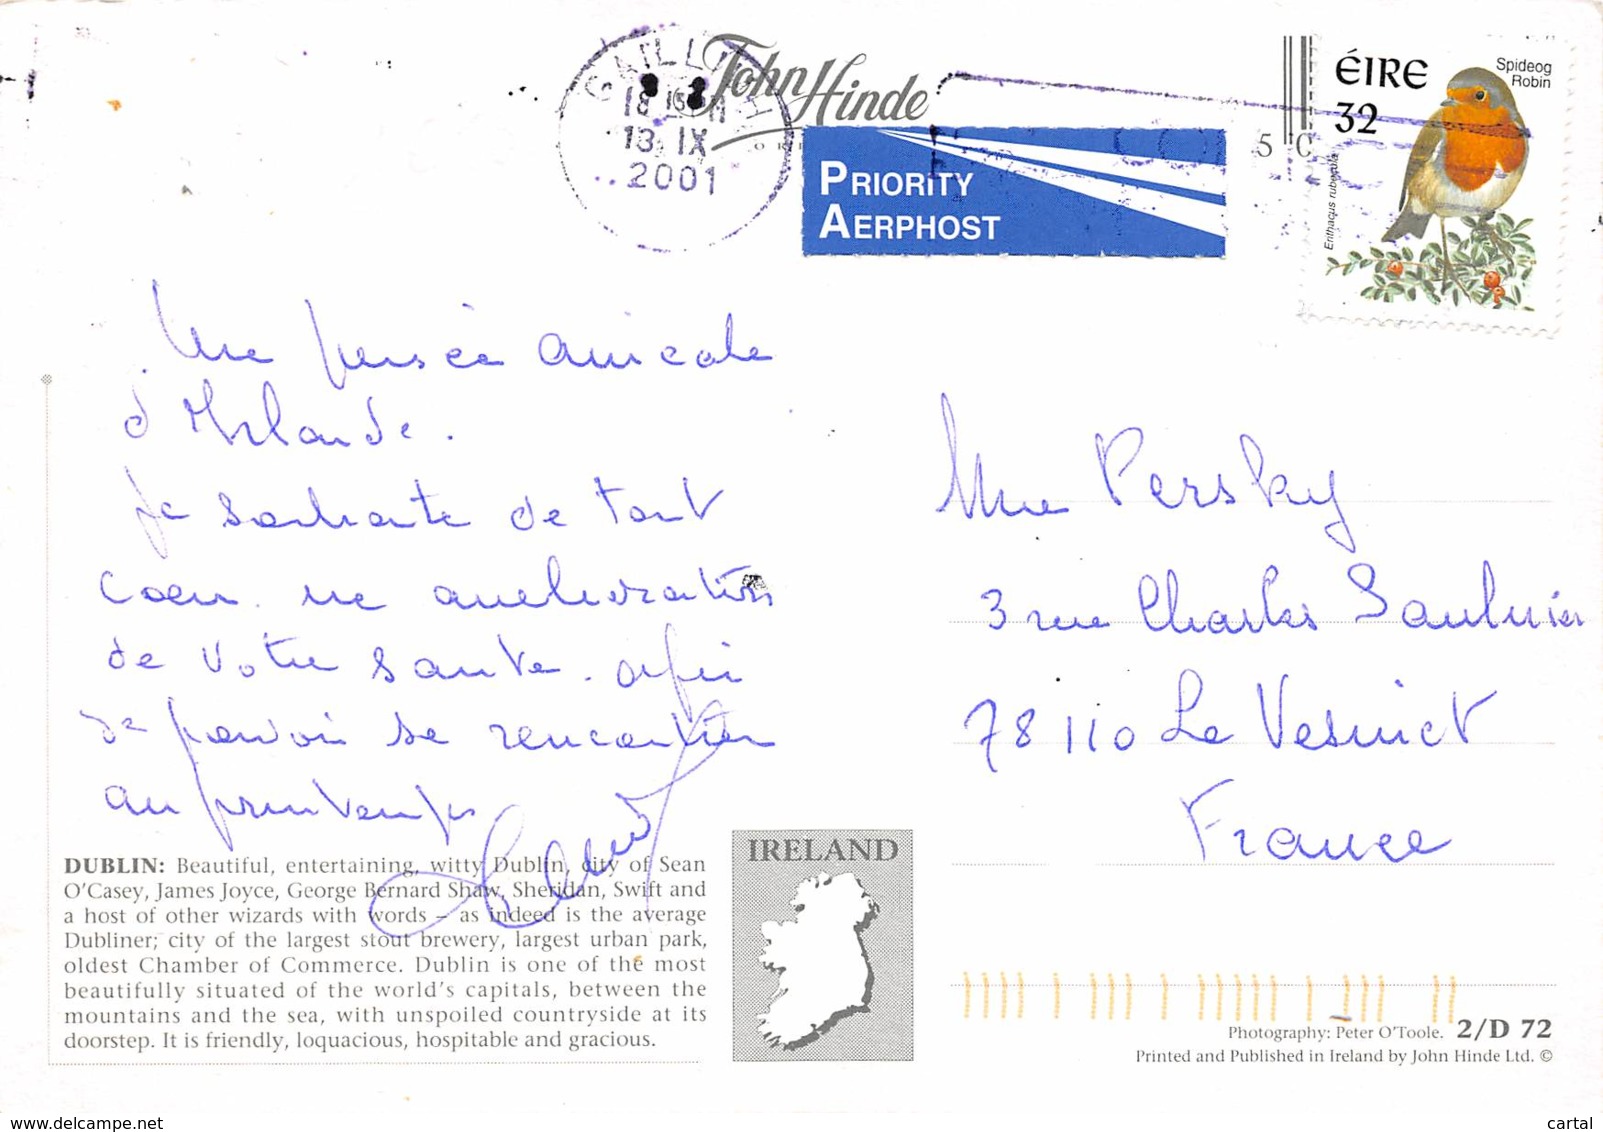 GAILLIMH
18 IX
13. IX
2001
John Hinde
PRIORITY
AERPHOST
5 C
ÉIRE
32
Spideog
Robin
Erithacus rubecula
Une pensée amicale
d'Irlande.
Je souhaite de tout
coeur une amélioration
de votre santé. afin
de pouvoir se rencontrer
au printemps
Mme Persky
3 rue Charles Saulnier
78110 Le Vesinet
France
DUBLIN: Beautiful, entertaining, witty Dublin, city of Sean
O'Casey, James Joyce, George Bernard Shaw, Sheridan, Swift and
a host of other wizards with words – as indeed is the average
Dubliner; city of the largest stout brewery, largest urban park,
oldest Chamber of Commerce. Dublin is one of the most
beautifully situated of the world's capitals, between the
mountains and the sea, with unspoiled countryside at its
doorstep. It is friendly, loquacious, hospitable and gracious.
IRELAND
Photography: Peter O'Toole. 2/D 72
Printed and Published in Ireland by John Hinde Ltd. ©
https://www.delcampe.net
cartal